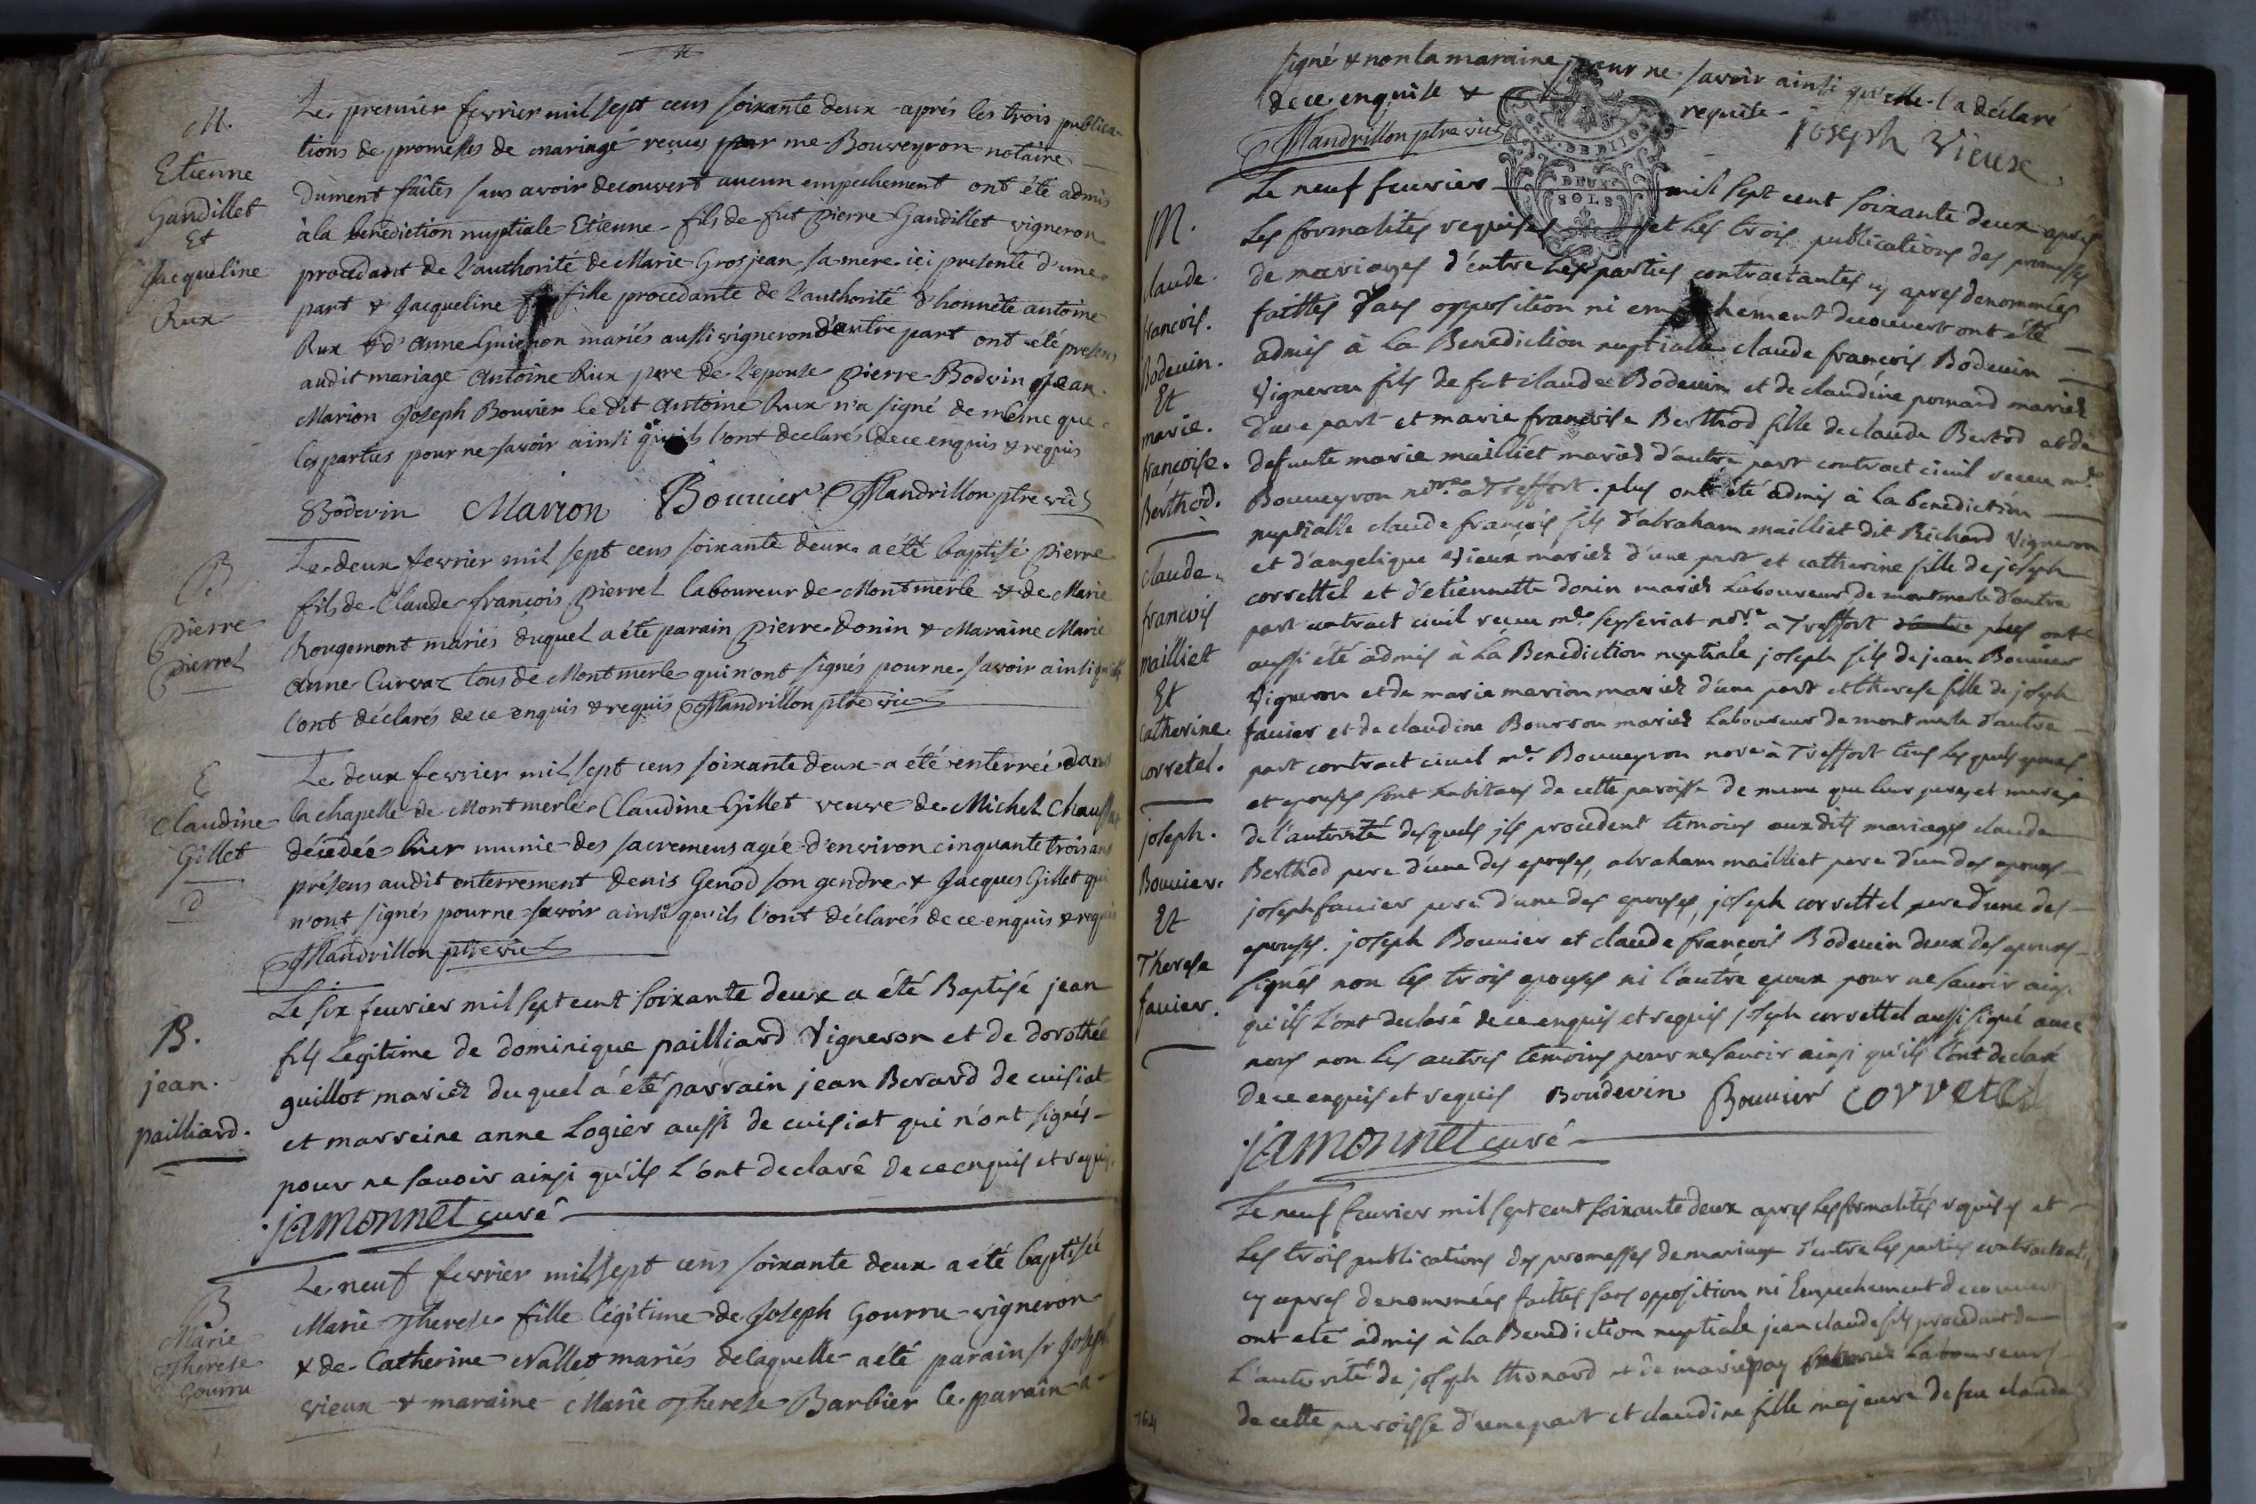 M.
Etienne
Gandillet
Et
Jacqueline
Rux
Le premier fevrier mil sept cens soixante deux aprés les trois publica-
tions de promesses de mariage reçues par me Bouveyron notaire
dument faites sans avoir decouvert aucun empechement ont été admis
à la bénédiction nuptiale Etienne fils de fut pierre Gandillet vigneron
procedant de l'authorité de Marie Grosjean sa mere ici presente d'une
part & Jacqueline fille procedante de l'authorité d'honnête antoine
Rux & d'anne Guichon mariés aussi vigneron d'autre part ont été presens
audit mariage Antoine Rux pere de l'epouse pierre Bodvin Jean
Marion Joseph Bouvier le dit Antoine Rux n'a signé de même que
les parties pour ne savoir ainsi qu'ils l'ont declarés de ce enquis & requis
Bodevin Marion Bouvier Mandrillon ptre vic
B.
pierre
pierrel
Le deux fevrier mil sept cens soixante deux a été baptisé pierre
fils de Claude françois pierrel laboureur de Montmerle & de Marie
Rougemont mariés duquel a été parain pierre donin & Maraine Marie
Anne Curvat tous de Montmerle qui n'ont signés pour ne savoir ainsi qu'ils
l'ont déclarés de ce enquis & requis Mandrillon ptre vic
E
Claudine
Gillet
d
Le deux fevrier mil sept cens soixante deux a été enterrée dans
la chapelle de Montmerle Claudine Gillet veuve de Michel
décédée hier munie des sacremens agée d'environ cinquante trois ans
présens audit enterrement denis Genod son gendre & Jacques Gillet qui
n'ont signés pour ne savoir ainsi qu'ils l'ont déclarés de ce enquis & requis
Mandrillon ptre vic
B.
jean.
pailliard.
Le six feuvrier mil sept cent soixante deux a été Baptisé jean
fils Legitime de dominique pailliard Vigneron et de dorothée
guillot mariez du quel a été parrain jean Berard de cuisiat
et marreine anne Logier aussi de cuisiat qui n'ont signés
pour ne savoir ainsi qu'ils L'ont declaré de ce enquis et requis.
jamonnet curé
B
Marie
Therese
Gourru
Le neuf fevrier mil sept cens soixante deux a été baptisée
Marie Therese fille légitime de Joseph Gourru vigneron
& de Catherine Nallet mariés delaquelle a été parain sr Joseph
vieux & maraine Marie Therese Barbier le parain a
signé & non la maraine pour ne savoir ainsi qu'elle l'a déclaré
de ce enquise & requite
DEUX
SOLS
Mandrillon ptre vic joseph Vieux
M.
claude.
francois.
Bodevin.
Et
marie.
françoise.
Berthod.
Le neuf feuvrier mil sept cent soixante deux après
Les formalités requises et Les trois publications des promesses
de mariages d'entre Les parties contractantes cy apres denommées
faittes sans opposition ni empechement decouvert ont été
admis à La Benediction nuptialle claude françois Bodevin
Vigneron fils de fut claude Bodevin et de claudine ponard mariez
d'une part et marie françoise Berthod fille de claude Bertod et de
defunte marie mailliet mariez d'autre part contract civil receu me.
Bouveyron nore. a Treffort. plus ont été admis à la benediction
claude.
francois
mailliet
Et
catherine.
corretel.
nuptialle claude françois fils d'abraham mailliet dit Richard Vigneron
et d'angelique Vieux mariez d'une part et catherine fille de joseph
correttel et d'etiennette donin mariez Laboureurs de montmerle d'autre
part contract civil receu me. seyseriat nore. a Treffort ont
aussi été admis à La Benediction nuptiale joseph fils de jean Bouvier
Vigneron et de marie marion mariez d'une part et therese fille de joseph
favier et de claudine Bourson mariez Laboureurs de montmerle d'autre
part contract civil me. Bouveyron nore à Treffort tous Les quels epoux
et epouses sont habitans de cette paroisse de meme que leur peres et meres
joseph.
Bouvier.
Et
Therese
favier.
de l'autorité desquels ils procedent temoins auxdits mariages claude
Berthod pere d'une des epouses, abraham mailliet pere d'un des epoux
joseph favier pere d'une des epouses, joseph correttel pere d'une des
epouses. joseph Bouvier et claude françois Bodevin deux des epoux
signés non les trois epouses ni l'autre epoux pour ne savoir ainsi
qu'ils L'ont declaré de ce enquis et requis joseph correttel aussi signé avec
nous non les autres temoins pour ne savoir ainsi qu'ils L'ont declaré
de ce enquis et requis Boudevin Bouvier Corretel
jamonnet curé
Le neuf feuvrier mil sept cent soixante deux apres Les formalités requises et
Les trois publications des promesses de mariage d'entre les parties contractantes
cy apres denommées faittes sans opposition ni Empechement decouvert
ont été admis à La Benediction nuptiale jean claude fils procedant de
L'autorité de joseph thonard et de marie pay Laboureurs
de cette paroisse d'une part et claudine fille majeure de feu claude